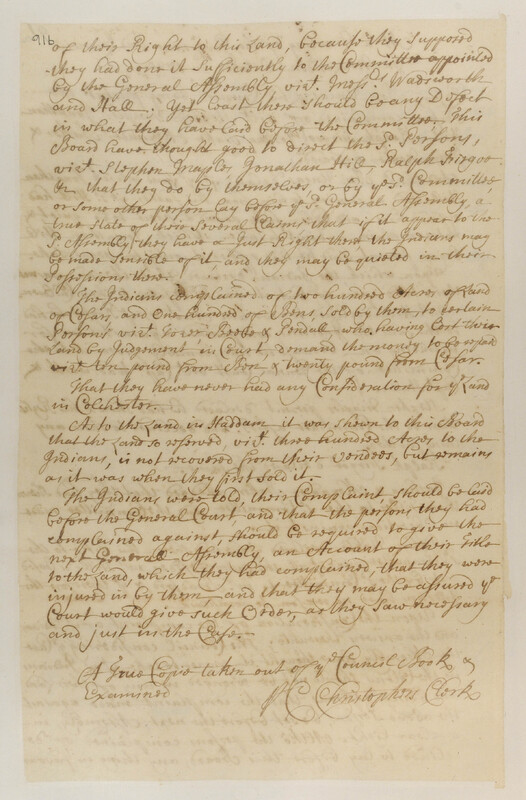 916
of their Right to this Land, because they supposed
they had done it sufficiently to the Committee appointed
by the General Assembly vizt. Messrs. Wadsworth
and Hall. Yet least there should be any Defect
in what they have laid before the Committee. This
Board have thought good to direct the sd. Persons,
vizt. Stephen Maples, Jonathan Hill, Ralph
& that they do by themselves, or by ye sd. Committee
or some other person lay before ye sd. General Assembly, a
true State of their Several Claims that if it appear to the
sd. Assembly, they have a Just Right there the Indians may
be made Sensible of it and they may be quieted in their
Possessions there.
The Indians complained of two hundred Acres of Land
of Cesars, and One hundred of Bens, Sold by them, to certain
Persons vizt. Beebe & Fendall who, having Lost their
Land by Judgement in Court, demand the money to be repaid
vizt. ten pound from Ben & twenty pound from Cesar.
That they have never had any Consideration for ye Land
in Colchester.
As to the Land in Haddam it was shewn to this Board
that the Land so reserved, vizt. three hundred Acres to the
Indians, is not recovered from their Vendees, but remains
as it was when they first sold it.
The Indians were told, their Complaint, should be laid
before the General Court, and that the persons they had
complained against, should be required to give the
next General Assembly, an Account of their Title
to the Land, which they had complained, that they were
injured in by them and that they may be assured ye
Court would give such Order, as they saw necessary
and just in the Case.
A True Copie taken out of ye Council Book &
Examined
pr C Christophers Clerk